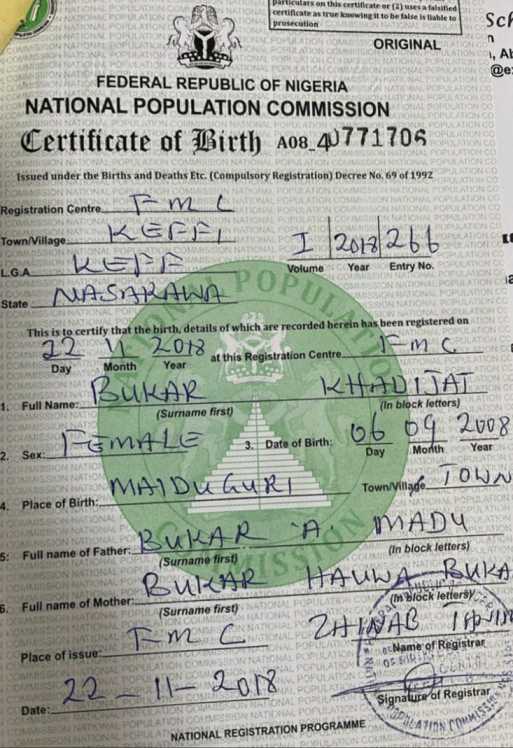 particulars on this certificate or (2) uses a falsified
certificate as true knowing it to be false is liable to
prosecution
ORIGINAL
FEDERAL REPUBLIC OF NIGERIA
NATIONAL POPULATION COMMISSION
Certificate of Birth A08_40771706
Issued under the Births and Deaths Etc. (Compulsory Registration) Decree No. 69 of 1992
Registration Centre FMC
Town/Village KEFFI
I 2018 266
Volume Year Entry No.
L.G.A KEFFI
State NASARAWA
This is to certify that the birth, details of which are recorded herein has been registered on
22 11 2018 at this Registration Centre FMC
Day Month Year
1. Full Name: BUKAR KHADIJAT
(Surname first) (In block letters)
2. Sex: FEMALE 3. Date of Birth: 06 09 2008
Day Month Year
4. Place of Birth: MAIDUGURI Town/Village TOWN
5: Full name of Father: BUKAR A. MADU
(Surname first) (In block letters)
6. Full name of Mother: BUKAR HAUWA BUKA
(Surname first) (In block letters)
Place of issue: FMC ZHINAB
Name of Registrar
Date: 22-11-2018
Signature of Registrar
NATIONAL REGISTRATION PROGRAMME